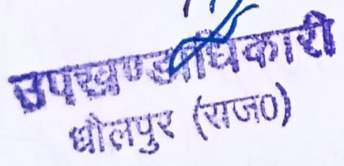 उपखण्डाधिकारी
धोलपुर (राज0)